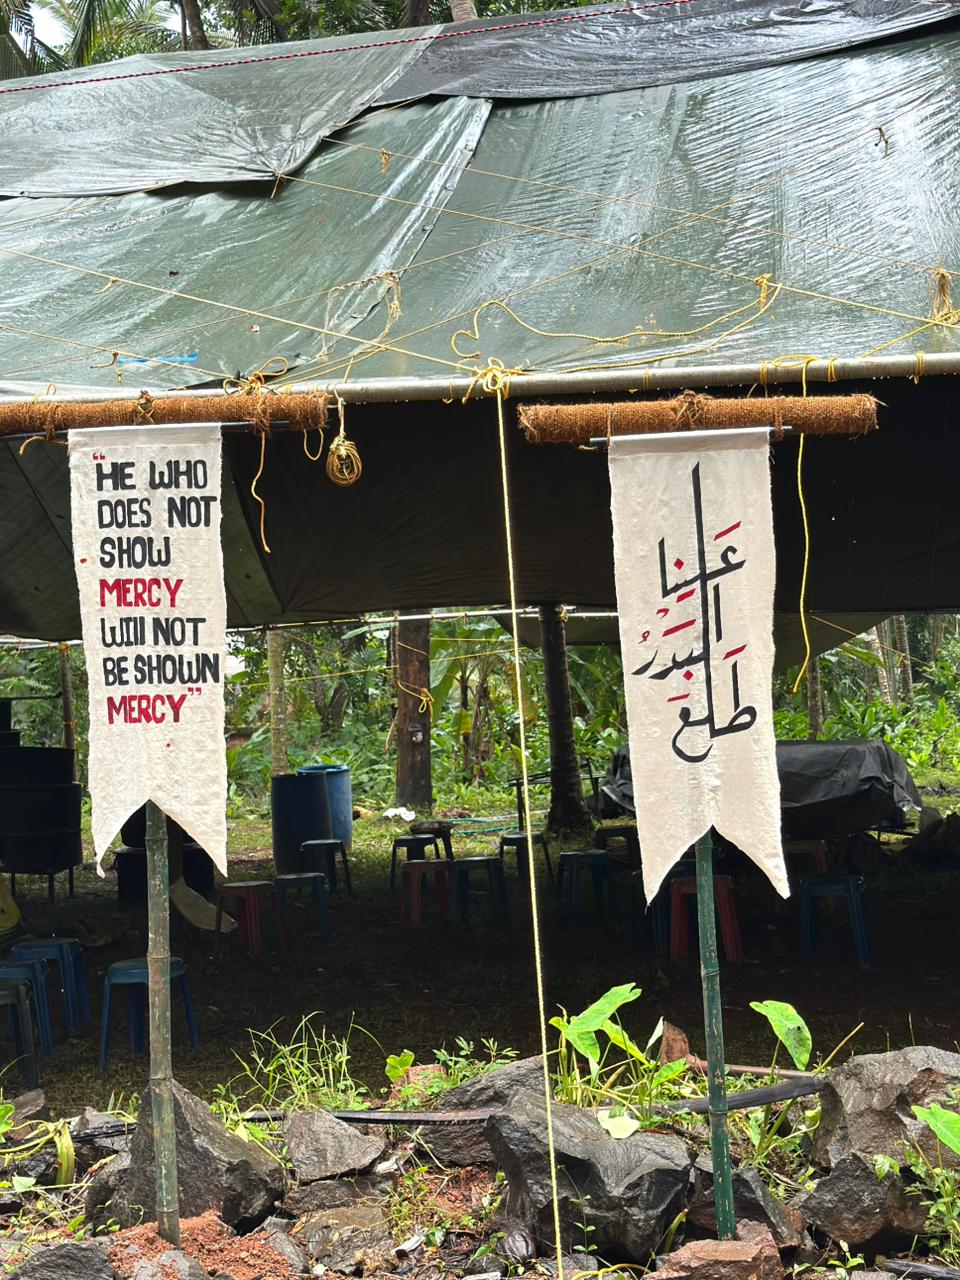 “HE WHO
DOES NOT
SHOW
MERCY
WIll NOT
BE SHOWN
MERCY”
طَلَعَ
الْبَدْرُ
عَلَيْنَا